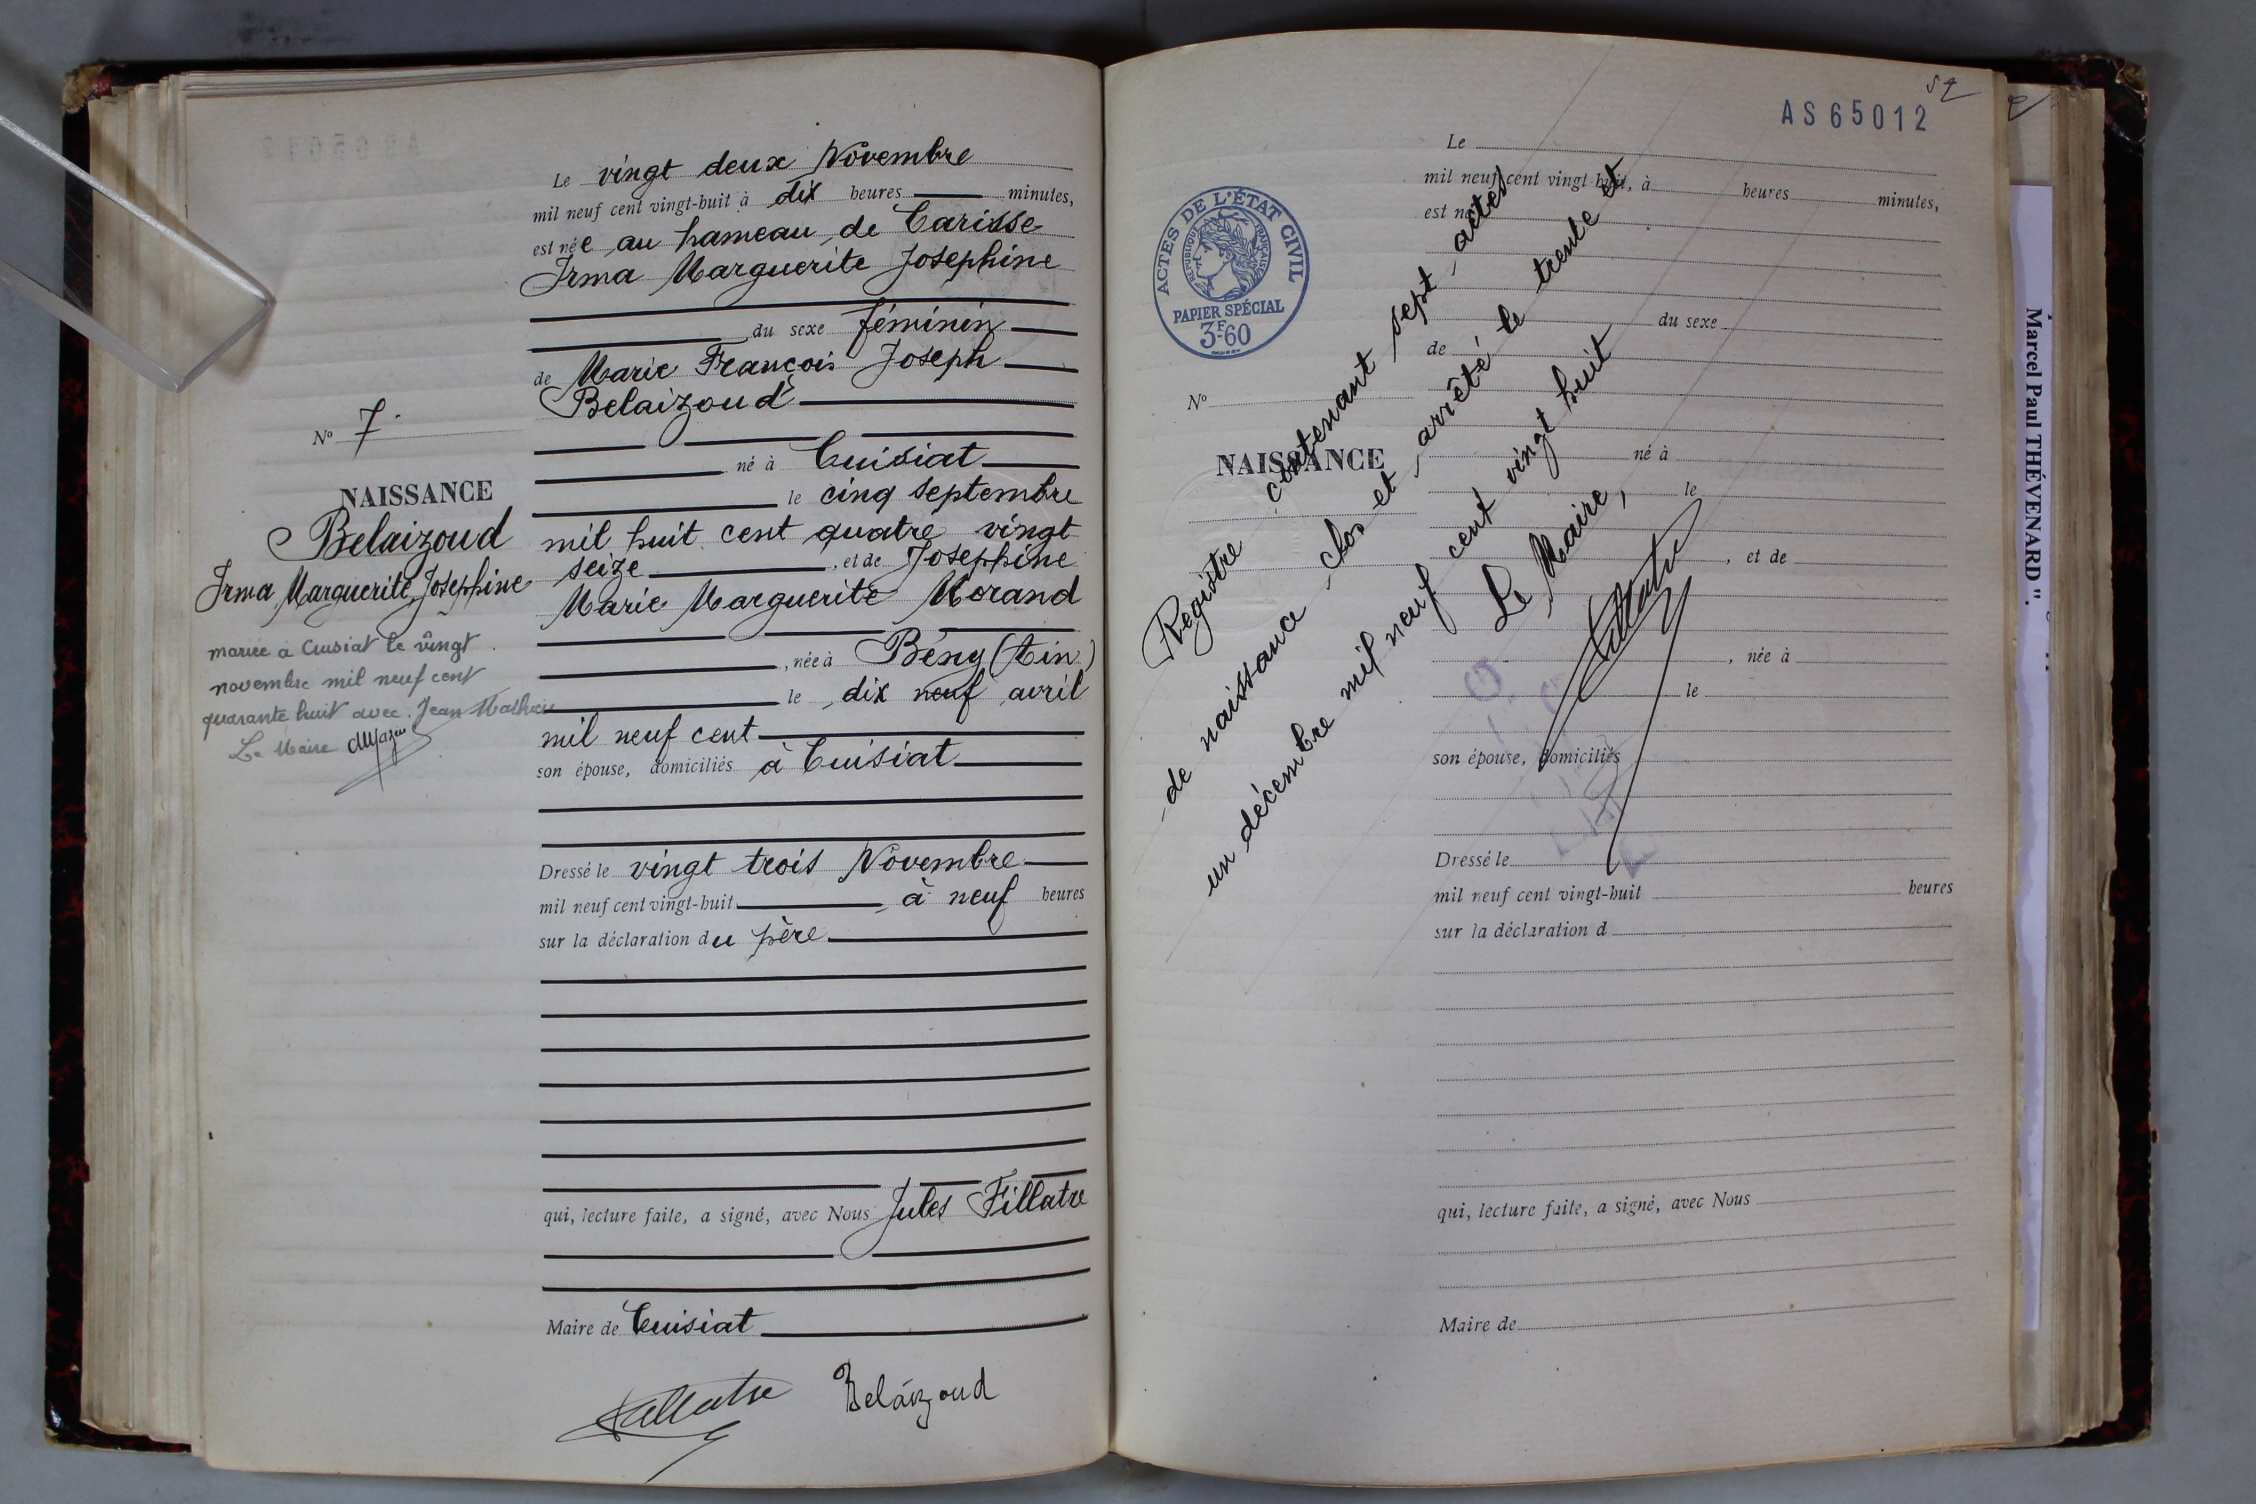 N° 7.
NAISSANCE
Belaizoud
Irma, Marguerite, Josephine
mariée à Cuisiat le vingt
novembre mil neuf cent
quarante huit avec Jean Mathieu
Le Maire
Le vingt deux Novembre
mil neuf cent vingt-huit à dix heures minutes,
est née au hameau de Carisse
Irma Marguerite Josephine
du sexe féminin
de Marie François Joseph
Belaizoud
né à Cuisiat
le cinq septembre
mil huit cent quatre vingt
seize, et de Josephine
Marie Marguerite Morand
, née à Bény (Ain)
le dix neuf avril
mil neuf cent
son épouse, domiciliés à Cuisiat
Dressé le vingt trois Novembre
mil neuf cent vingt-huit, à neuf heures
sur la déclaration du père
qui, lecture faite, a signé, avec Nous Jules Fillatre
Maire de Cuisiat
Fillatre Belaizoud
AS65012
ACTES DE L'ÉTAT CIVIL
RÉPUBLIQUE FRANÇAISE
PAPIER SPÉCIAL
3F60
N°
NAISSANCE
Le
mil neuf cent vingt-huit, à heures minutes,
est né
du sexe
de
né à
le
, et de
, née à
le
son épouse, domiciliés
Dressé le
mil neuf cent vingt-huit heures
sur la déclaration d
qui, lecture faite, a signé, avec Nous
Maire de
Registre contenant sept actes
de naissance clos et arrêté le trente et
un décembre mil neuf cent vingt huit
Le Maire,
Fillatre
Marcel Paul THÉVENARD".